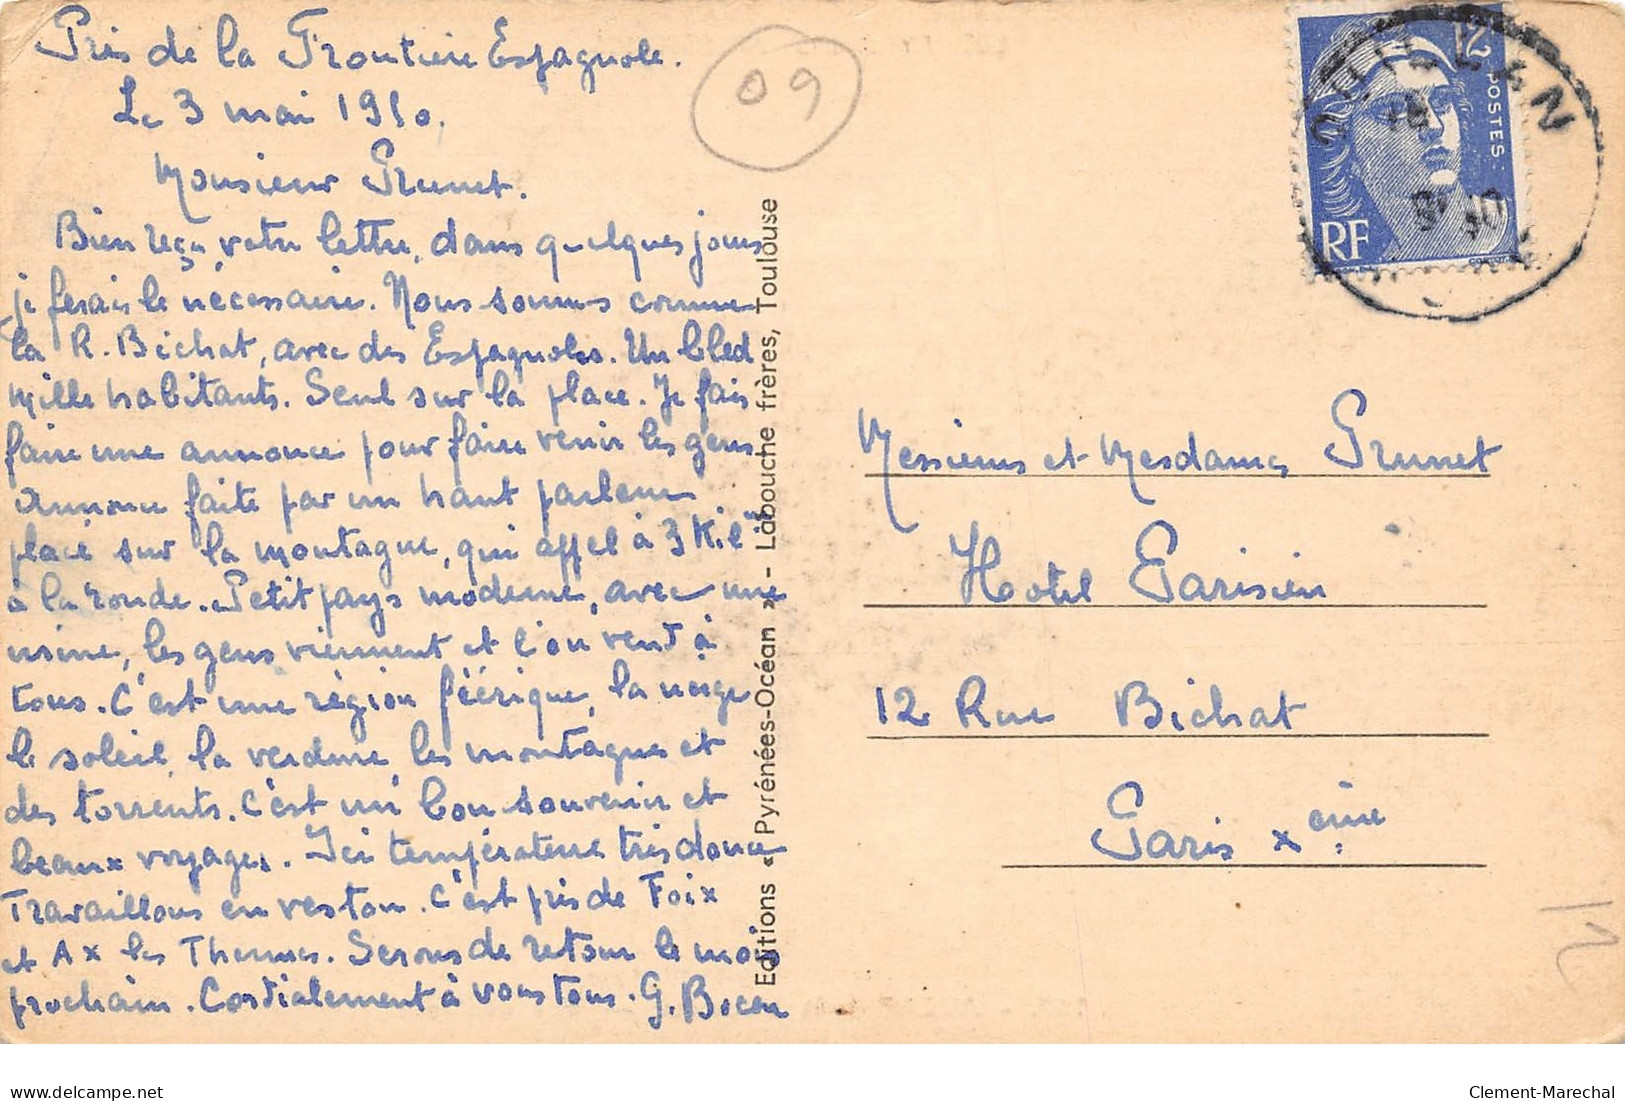 Près de la Frontière Espagnole.
Le 3 mai 1950.
Monsieur Prunet.
Bien reçu votre lettre, dans quelques jours
je ferais le nécessaire. Nous sommes comme
la R. Bichat, avec des Espagnoles. Un bled
mille habitants. Seul sur la place. Je fais
faire une annonce pour faire venir les gens
Annonce faite par un haut parleur
placé sur la montagne, qui appel à 3 Kil
à la ronde. Petit pays moderne, avec une
usine, les gens viennent et l'on vend à
tous. C'est une région féérique, la neige
le soleil, la verdure, les montagnes et
des torrents. C'est un bon souvenir et
beaux voyages. Ici température très douce
Travaillons en veston. C'est près de Foix
et Ax les Thermes. Serons de retour le mois
prochain. Cordialement à vous tous. G.
09
Editions « Pyrénées-Océan » - Labouche frères, Toulouse
12
POSTES
RF
Messieurs et Mesdames Prunet
Hotel Parisien
12 Rue Bichat
Paris x ème
12
delcampe.net
Clement-Marechal